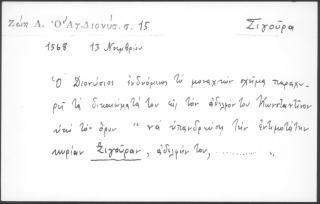 Ζώη Λ. Ὁ Ἁγ. Διονύσ. σ. 15 Σιγοῦρα
1568 13 Νοεμβρίου
Ὁ Διονύσιος ἐνδυόμενος τὸ μοναχικὸν σχῆμα παραχω-
ρεῖ τὰ δικαιώματά του εἰς τὸν ἀδελφόν του Κωνσταντῖνον
ὑπὸ τὸν ὅρον " νὰ ὑπανδρεύσῃ τὴν ἐντιμοτάτην
κυρίαν Σιγοῦραν, ἀδελφήν του, ........... "